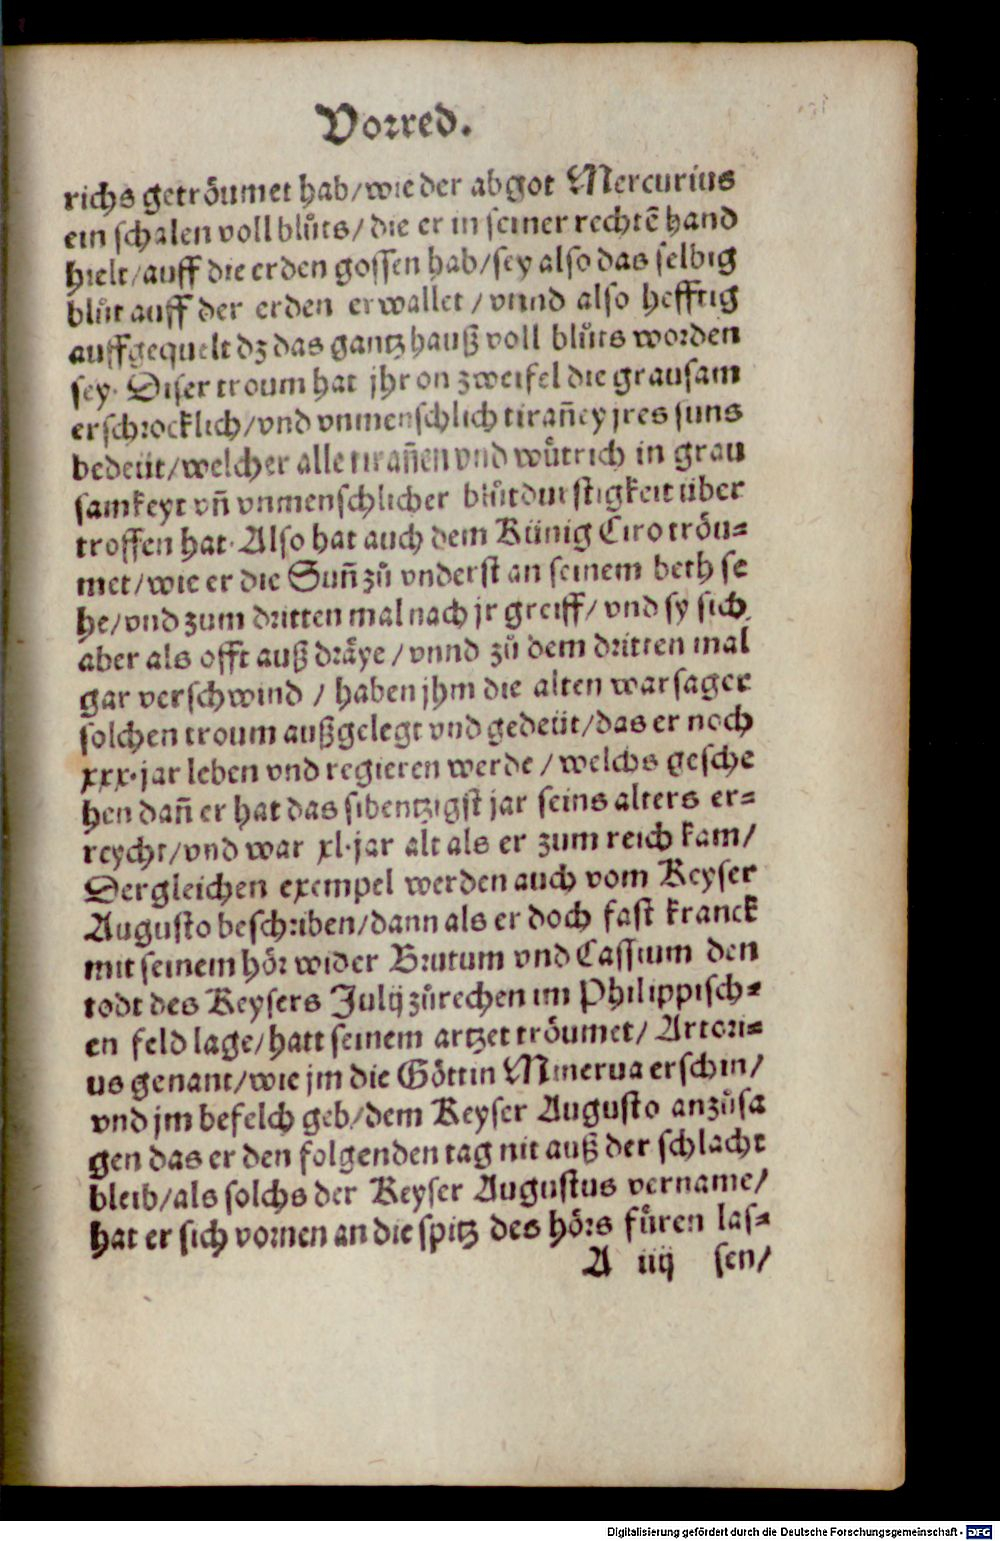 Vorred.
richs getröumet hab/wie der abgot Mercurius
ein schalen voll blůts/die er in seiner rechtē hand
hielt/auff die erden gossen hab/sey also das selbig
blůt auff der erden erwallet/vnnd also hefftig
auffgequelt dz das gantz hauß voll blůts worden
sey. Diser troum hat jhr on zweifel die grausam
erschrocklich/vnd vnmenschlich tirañey jres suns
bedeüt/welcher alle tirañen vnd wůtrich in grau
samkeyt vñ vnmenschlicher blůtdurstigkeit über
troffen hat. Also hat auch dem Künig Ciro tröu-
met/wie er die Suñ zů vnderst an seinem beth se
he/vnd zum dritten mal nach jr greiff/vnd sy sich
aber als offt auß dräye/vnnd zů dem dritten mal
gar verschwind/haben jhm die alten warsager
solchen troum außgelegt vnd gedeüt/das er noch
xxx.jar leben vnd regieren werde/welchs gesche
hen dañ er hat das sibentzigst jar seins alters er-
reycht/vnd war xl.jar alt als er zum reich kam/
Dergleichen exempel werden auch vom Keyser
Augusto beschriben/dann als er doch fast kranck
mit seinem hör wider Brutum vnd Cassium den
todt des Keysers Julij zůrechen im Philippisch-
en feld lage/hatt seinem artzet tröumet/Artori-
us genant/wie jm die Göttin Minerua erschin/
vnd jm befelch geb/dem Keyser Augusto anzůsa
gen das er den folgenden tag nit auß der schlacht
bleib/als solchs der Keyser Augustus vername/
hat er sich vornen an die spitz des hörs fůren las-
A iiij sen/
Digitalisierung gefördert durch die Deutsche Forschungsgemeinschaft - DFG